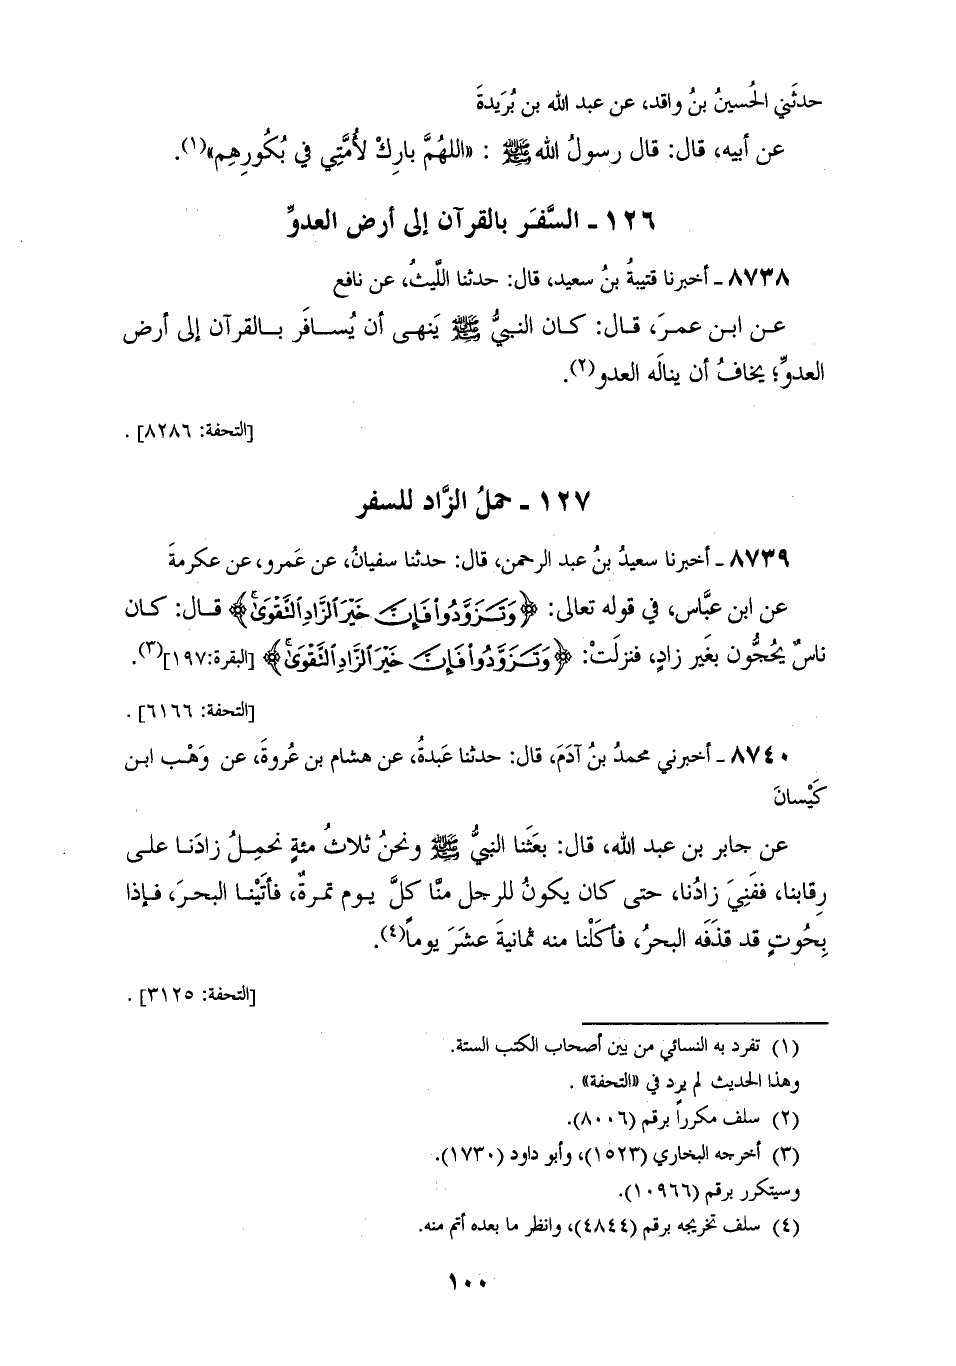 حدثَني الحُسينُ بنُ واقد، عن عبد الله بن بُرَيدةَ
عن أبيه، قال: قال رسولُ الله ﷺ : «اللهُمَّ بارِكْ لأُمَّتِي في بُكُورِهِم»(١).
١٢٦ ـ السَّفَر بالقرآن إلى أرض العدوِّ
٨٧٣٨ ـ أخبرنا قتيبةُ بنُ سعيد، قال: حدثنا اللَّيثُ، عن نافع
عـن ابـن عمـرَ، قـال: كـان النبيُّ ﷺ يَنهـى أن يُسـافَـر بـالقرآن إلى أرض
العدوِّ؛ يخافُ أن ينالَه العدو(٢).
[التحفة: ٨٢٨٦] .
١٢٧ ـ حملُ الزَّاد للسفر
٨٧٣٩ ـ أخبرنا سعيدُ بنُ عبد الرحمن، قال: حدثنا سفيانُ، عن عَمرو، عن عكرمةَ
عن ابن عبَّاس، في قوله تعالى: ﴿وَتَكَزَوَّدُوا۟ فَإِنَّ خَيْرَ ٱلزَّادِ ٱلتَّقْوَىٰ﴾ قـال: كـان
ناسٌ يَحُجُّون بغَير زادٍ، فنزلَتْ: ﴿وَتَزَوَّدُوا۟ فَإِنَّ خَيْرَ ٱلزَّادِ ٱلتَّقْوَىٰ﴾ [البقرة:١٩٧](٣).
[التحفة: ٦١٦٦] .
٨٧٤٠ ـ أخبرني محمدُ بنُ آدَمَ، قال: حدثنا عَبدةُ، عن هشام بن عُروةَ، عن وَهْب ابـن
كَيْسانَ
عن جابر بن عبد الله، قال: بعَثَنا النبيُّ ﷺ ونحنُ ثلاثُ مئةٍ نحمِـلُ زادَنـا علـى
رِقابنا، ففَنِيَ زادُنا، حتى كان يكونُ للرجل منَّا كلَّ يـوم تمـرةٌ، فأتَيْنـا البحـرَ، فـإذا
بِحُوتٍ قد قذَفَه البحرُ، فأكَلْنا منه ثمانيةَ عشَرَ يوماً(٤).
[التحفة: ٣١٢٥] .
(١) تفرد به النسائي من بين أصحاب الكتب الستة.
وهذا الحديث لم يرد في «التحفة» .
(٢) سلف مكرراً برقم (٨٠٠٦).
(٣) أخرجه البخاري (١٥٢٣)، وأبو داود (١٧٣٠).
وسيتكرر برقم (١٠٩٦٦).
(٤) سلف تخريجه برقم (٤٨٤٤)، وانظر ما بعده أتم منه.
١٠٠